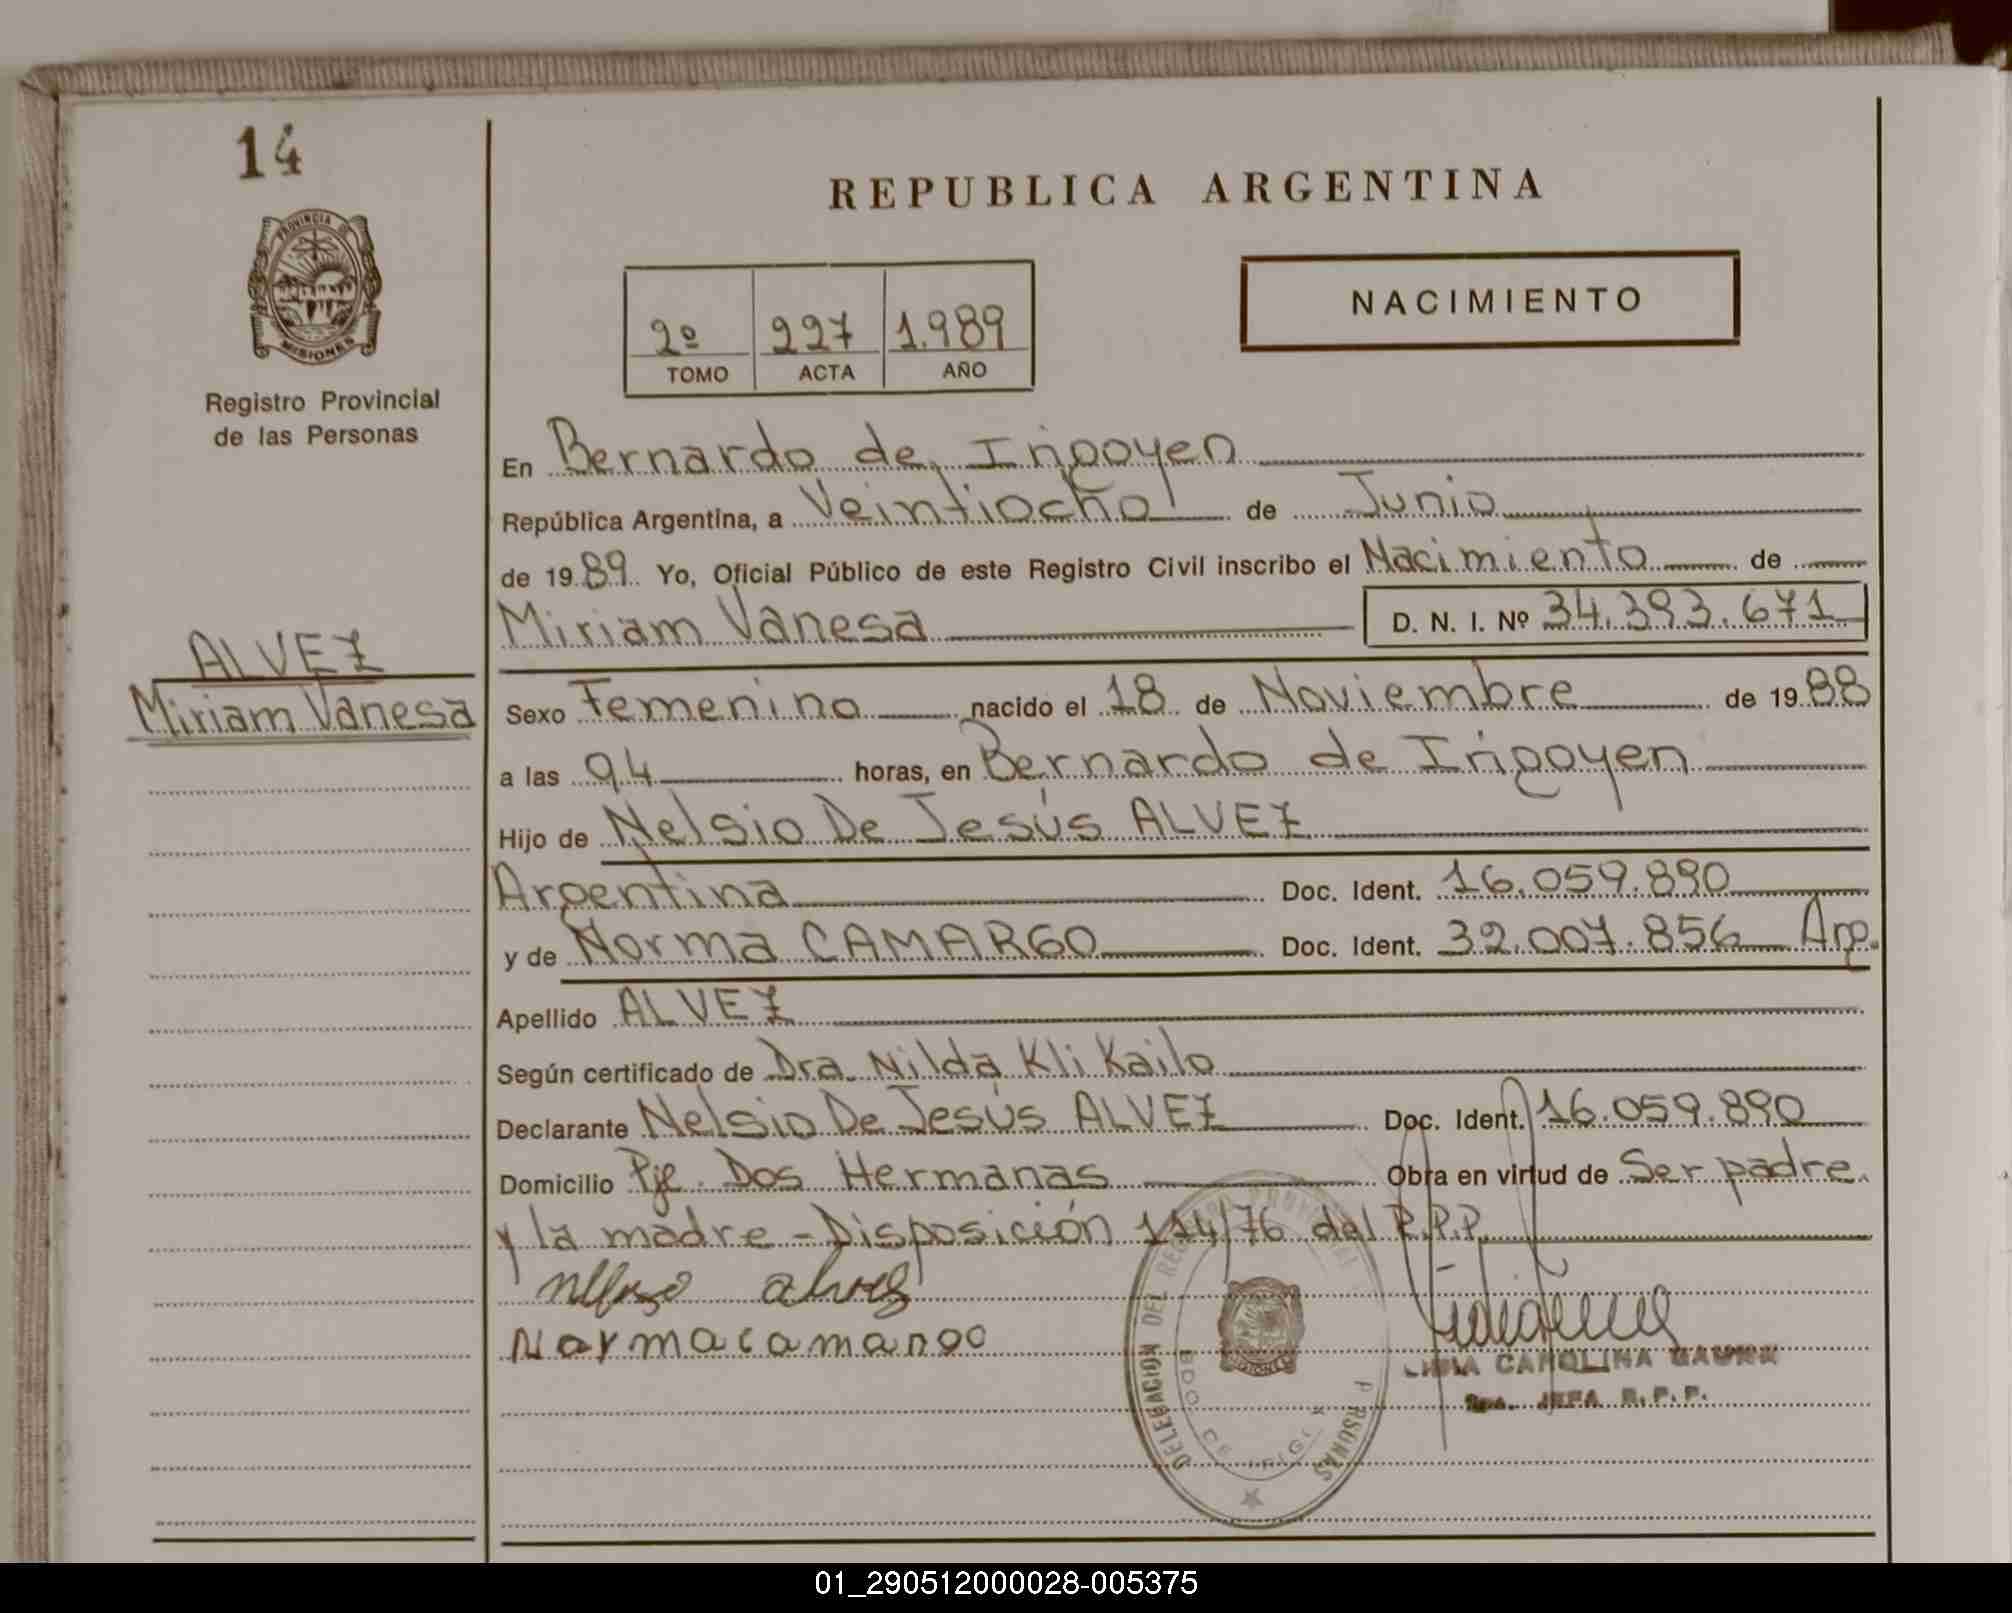 14
PROVINCIA DE
MISIONES
Registro Provincial
de las Personas
ALVEZ
Miriam Vanesa
REPUBLICA ARGENTINA
2º 227 1.989
TOMO ACTA AÑO
NACIMIENTO
En Bernardo de Irigoyen
República Argentina, a Veintiocho de Junio
de 1989 Yo, Oficial Público de este Registro Civil inscribo el Nacimiento de
Miriam Vanesa D. N. I. Nº 34.393.671
Sexo Femenino nacido el 18 de Noviembre de 1988
a las 04 horas, en Bernardo de Irigoyen
Hijo de Nelsio De Jesús ALVEZ
Argentina Doc. Ident. 16.059.890
y de Norma CAMARGO Doc. Ident. 32.007.856 Arg.
Apellido ALVEZ
Según certificado de Dra. Nilda Kli Kailo
Declarante Nelsio De Jesús ALVEZ Doc. Ident. 16.059.890
Domicilio Pje. Dos Hermanas Obra en virtud de Ser padre
y la madre - Disposición 114/76 del R.P.P.
alvez
Norma camargo
DELEGACION DEL REGISTRO PROVINCIAL PERSONAS
BDO DE IRIGOYEN
CAROLINA GAUNA
JEFA R.P.P.
01_290512000028-005375